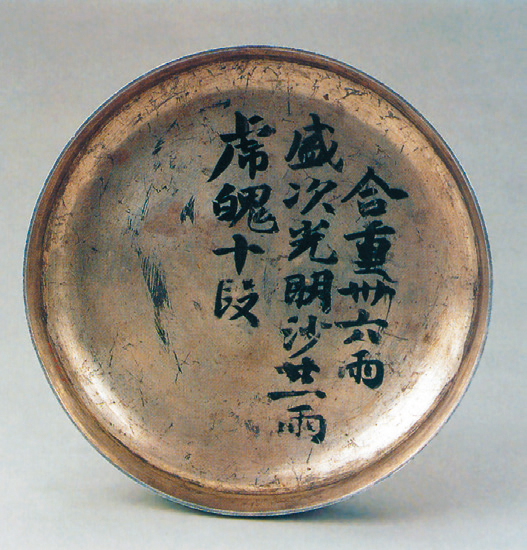 合重卅六兩
盛次光明沙廿一兩
虎魄十段